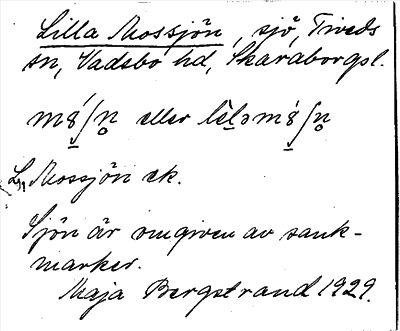 Lilla Mossjön, sjö, Tiveds
sn, Vadsbo hd, Skaraborgs l.
eller
L. Mossjön ek.
Sjön är omgiven av sank-
marker.
Maja Bergstrand 1929.